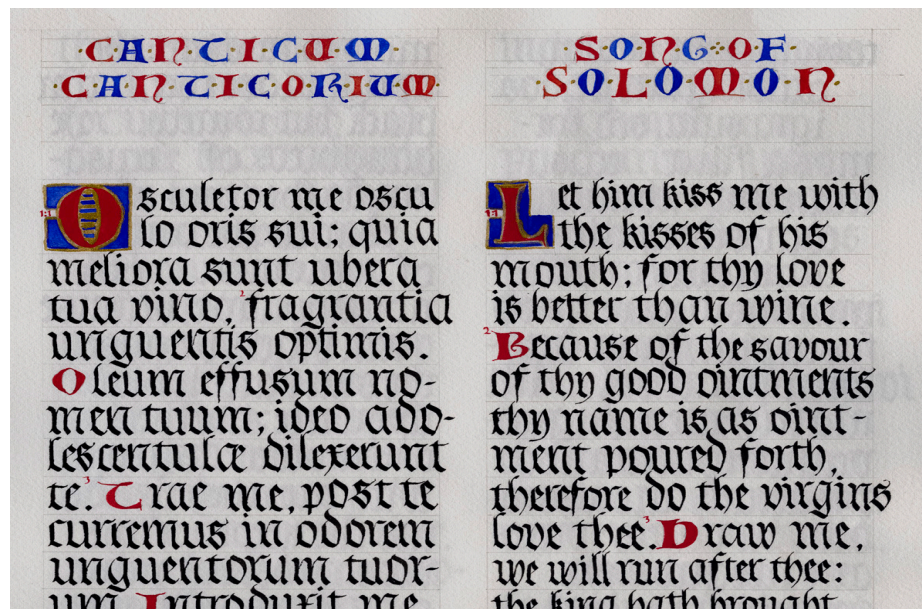 CANTICUM
CANTICORIUM
1:1 Osculetor me oscu
lo oris sui; quia
meliora sunt ubera
tua vino, 2 fragrantia
unguentis optimis.
Oleum effusum no-
men tuum; ideo ado-
lescentulæ dilexerunt
te. 3 Trae me, post te
curremus in odorem
unguentorum tuor-
um. Introduxit me
SONG OF
SOLOMON
1:1 Let him kiss me with
the kisses of his
mouth; for thy love
is better than wine.
2 Because of the savour
of thy good ointments
thy name is as oint-
ment poured forth,
therefore do the virgins
love thee. 3 Draw me,
we will run after thee:
the king hath brought